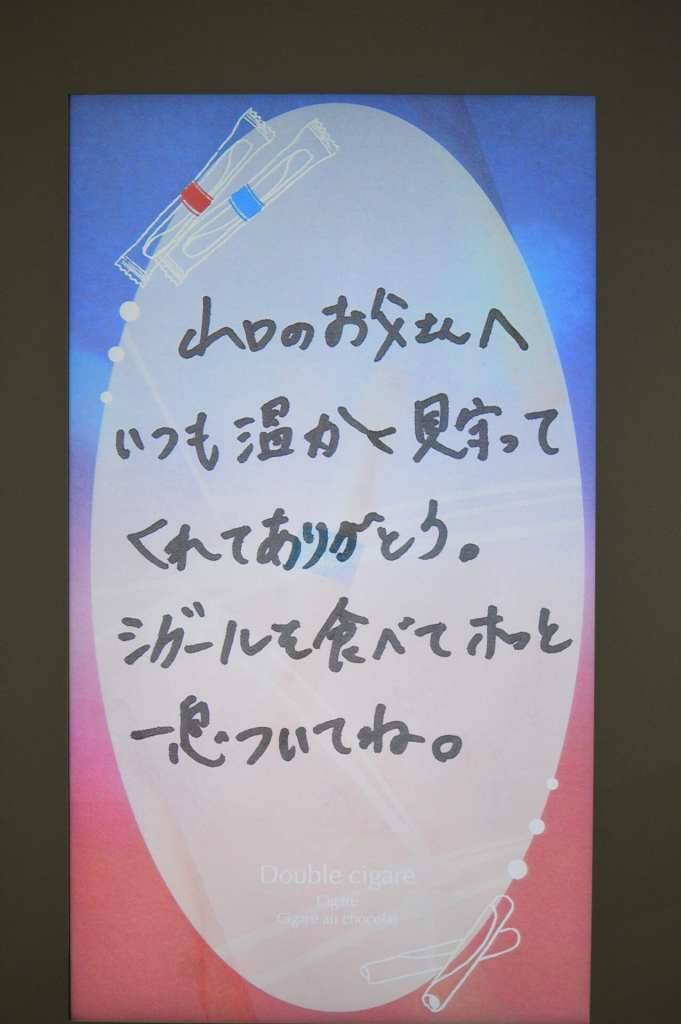 山口のお父さんへ
いつも温かく見守って
くれてありがとう。
シガールを食べてホッと
一息ついてね。
Double cigare
Cigare
Cigare au chocolat